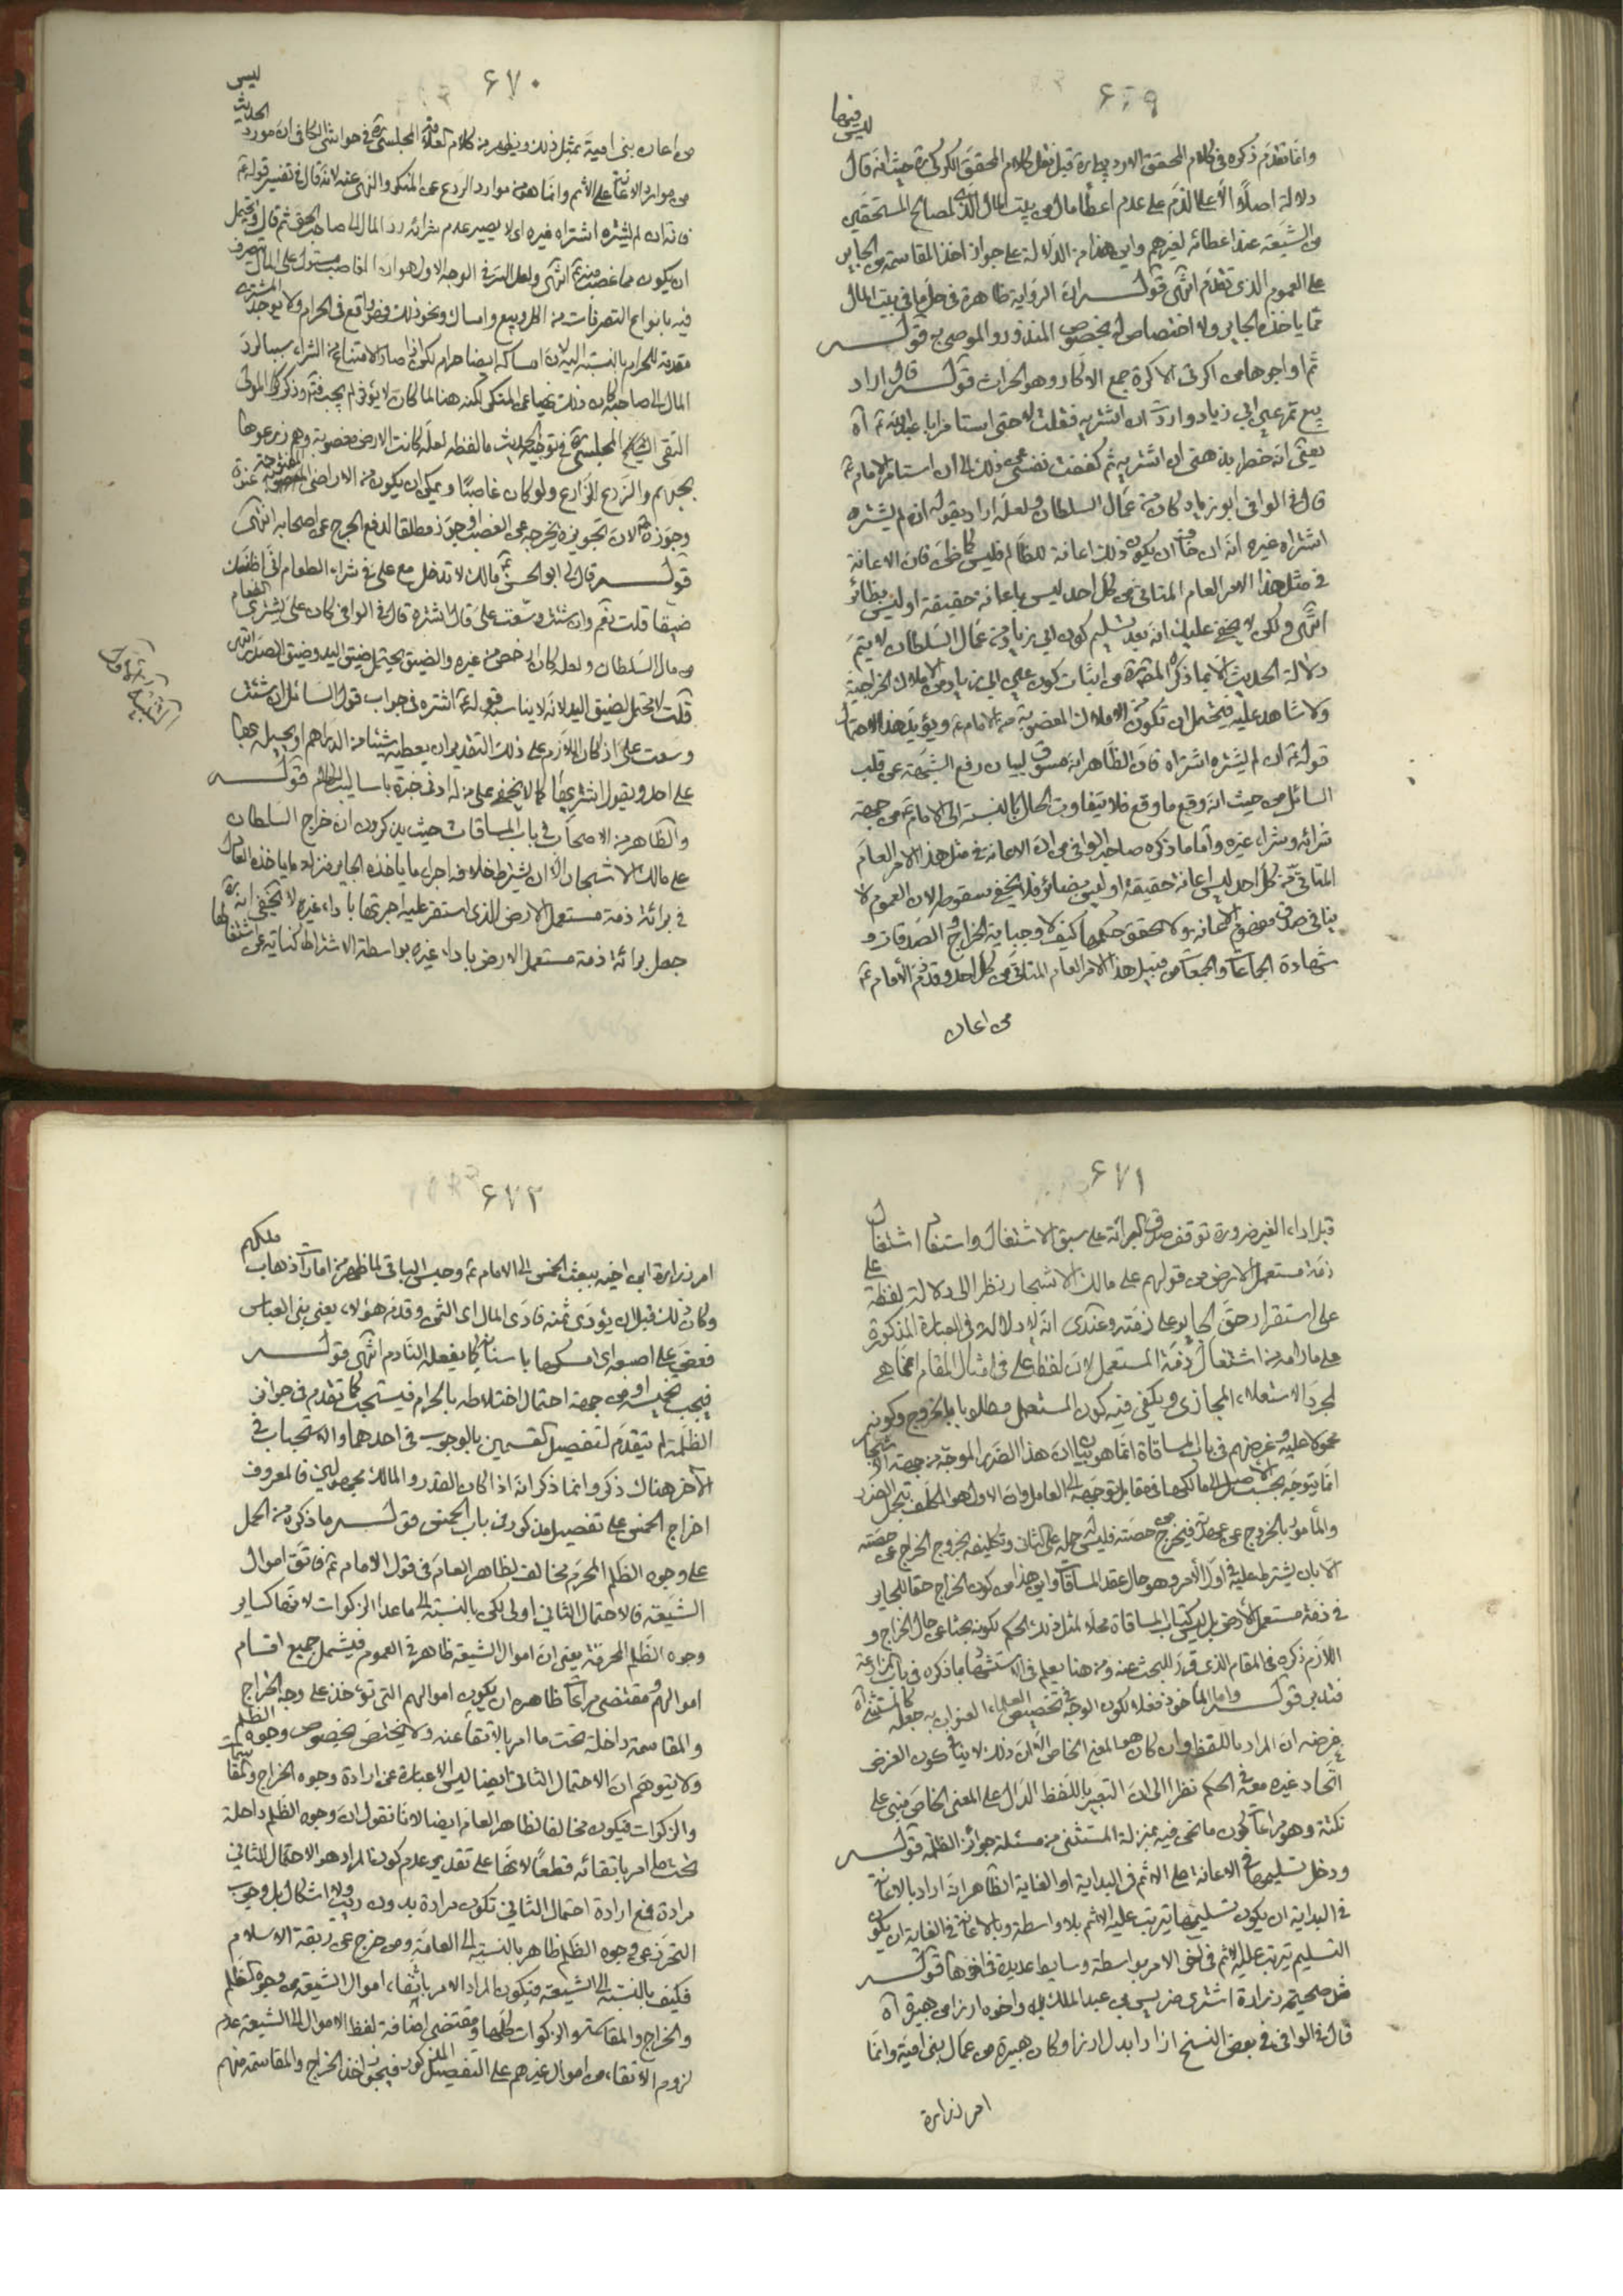 ۶۶۹
ليس فيها
وانما تقدم ذكره فى كلام المحقق الاردبيلى ره قبل نقل كلام المحقق الكركى ره حيث انه قال
دلالة اصلا الا على الذم على عدم اعطاء مال من بيت المال الذى لمصالح المستحقين
من الشيعة عند اعطائه لغيرهم واين هذا من الدلالة على جواز اخذ المقاسمة من الجاير
على العموم الذى تقدم انتهى قوله ان الرواية ظاهرة فى حل ما فى بيت المال
مما ياخذه الجاير ولا اختصاص له بخصوص المنذور والموصى به قوله
ثم اواجرها من اكرتى الاكرة جمع الاكار وهو الحراث قوله قال اراد
بيع تمر عين ابى زياد واردت ان اشتريه فقلت لا حتى استامر ابا عبد الله ع آه
يعنى انه خطر بذهنى ان اشتريه ثم كففت نفسى عن ذلك الى ان استامر الامام ع
قال فى الوافى ابو زياد كان من عمال السلطان ولعله اراد بقوله ان لم يشتره
اشتراه غيره انه ان خاف ان يكون ذلك اعانة للظالم فليس كما ظن فان الاعانة
فى مثل هذا الامر العام المتاتى من كل احد ليس باعانة حقيقة او ليس بضائر
انتهى ولكن لا يخفى عليك انه بعد تسليم كون ابى زياد من عمال السلطان لا يتم
دلالة الحديث الا بما ذكره المصنف ره من اثبات كون عين ابى زياد من الاملاك الخراجية
ولا شاهد عليه فيحتمل ان تكون من الاملاك المغصوبة من الامام ع ويؤيد هذا الاحتمال
قوله ع ان لم يشتره اشتراه فان الظاهر انه مسوق لبيان رفع الشبهة عن قلب
السائل من حيث انه وقع ما وقع فلا يتفاوت الحال بالنسبة الى الامام ع من جهة
شرائه وشراء غيره واما ما ذكره صاحب الوافى من ان الاعانة فى مثل هذا الامر العام
المتاتى من كل احد ليس اعانة حقيقة او ليس بضائر فلا يخفى سقوطه لان العموم لا
ينافى صدق مفهوم الاعانة ولا تحقق حكمها كيف لا وجباية الخراج والصدقات و
شهادة الجماعات والجمعات من قبيل هذا الامر العام المتاتى من كل احد وقد ذم الامام ع
من اعان
۶۷۰
ليس
من اعان بنى امية بمثل ذلك ويظهر من كلام العلامة المجلسى ره فى حواشى الكافى ان مورد الحديث
من موارد الاعانة على الاثم وانما هو من موارد الردع عن المنكر والنهى عنه لانه قال فى تفسير قوله ع
فانه ان لم يشتره اشتراه غيره اى لا يصير عدم شرائه رد المال الى صاحب الحق ثم قال ويحتمل
ان يكون مما غصب منه ع انتهى ولعل السر فى الوجه الاول هو ان الغاصب مستول على المال متصرف
فيه بانواع التصرفات من اكل وبيع وامساك ونحو ذلك فهو واقع فى الحرام ولا يوجد المشترى
مقدمة للحرام بالنسبة اليه لان امساكه ايضا حرام لكن اذا صار الامتناع من الشراء سببا لرد
المال الى صاحبه كان ذلك نهيا عن المنكر لكنه هنا لما كان لا يؤثر لم يجب فيه وذكر المولى
التقى المجلسى ره فى توجيه الحديث ما لفظه لعله كانت الارض مغصوبة وهم زرعوها
ببذرهم والزرع للزارع ولو كان غاصبا ويمكن ان يكون من الاراضى المفتوحة عنوة
وجوزه ع لان تجويزه يخرجه عن الغصب وجوز مطلقا لدفع الحرج عن اصحابه انتهى
قوله قال لى ابو الحسن ع مالك لا تدخل مع على فى شراء الطعام انى اظنك
ضيقا قلت نعم وان شئت وسعت على قال اشتره قال فى الوافى كان على يشترى الطعام
من مال السلطان ولعله كان ارخص من غيره والضيق يحتمل ضيق اليد وضيق الصدر انتهى
قلت لا يحتمل لضيق اليد لانه لا يناسب قوله ع اشتره فى جواب قول السائل ان شئت
وسعت على اذ كان اللازم على ذلك التقدير ان يعطيه شيئا من الدراهم او يحيله بها
على احد ويقول اشتر بها كما لا يخفى على من له ادنى خبرة باساليب الكلام قوله
والظاهر من الاصحاب فى باب المساقات حيث يذكرون ان خراج السلطان
على مالك الاشجار الا ان يشترط خلافه اجراء ما ياخذه الجاير منزلة ما ياخذه العادل
فى برائة ذمة مستعمل الارض الذى استقر عليه اجرتها باداء غيره لا يخفى انه ره
جعل برائة ذمة مستعمل الارض باداء غيره بواسطة الاشتراط كناية عن اشتغالها
۶۷۱
قبل اداء الغير ضرورة توقف صدق البرائة على سبق الاشتغال واستفاد اشتغال
ذمة مستعمل الارض من قولهم على مالك الاشجار نظرا الى دلالة لفظة على
على استقرار حق الجاير على ذمته وعندى انه لا دلالة فى العبارة المذكورة
على ما رامه من اشتغال ذمة المستعمل لان لفظ على فى امثال المقام انما هى
لمجرد الاستعلاء المجازى ويكفى فيه كون المستعمل مطلوبا بالخروج وكونه
محمولا عليه وغرضهم فى باب المساقاة انما هو بيان ان هذا الضرر الموجه من جهة الاشجار
انما يتوجه بحسب الاصل الى مالكها فى مقابل توجهه الى العامل وان الاول هو المكلف بتحمل الضرر
والمأمور بالخروج عن عهدته فيخرج من حصته فليس له حمله على الثانى وتكليفه بخروج الخراج عن حصته
الا بان يشترط عليه فى اول الامر وهو حال عقد المساقات واين هذا من كون الخراج حقا للجاير
فى ذمة مستعمل الارض بل ليس كتاب المساقاة محلا لمثل ذلك الحكم لكونه بحثا عن حال الخراج و
اللازم ذكره فى المقام الذى قرر للبحث عنه ومن هنا يعلم فى الاستشهاد بما ذكره فى باب المزارعة
فتدبر قوله واما الماخوذ فعلا لكون الوجه فى تخصيص العلماء العنوان به جعله كالمستثنى آه
غرضه ان المراد باللفظ وان كان هو المعنى الخاص الا ان ذلك لا ينافى كون الغرض
اتحاد غيره معه فى الحكم نظرا الى ان التعبير باللفظ الدال على المعنى الخاص مبنى على
نكتة وهو مراعات كون ما نحن فيه بمنزلة المستثنى من مسئلة جوائز الظلمة قوله
ودخل تسليمها فى الاعانة على الاثم فى البداية او الغاية الظاهر انه اراد بالاعانة
فى البداية ان يكون تسليمها يترتب عليه الاثم بلا واسطة وبالاعانة فى الغاية ان يكون
التسليم يترتب عليه الاثم فى اخر الامر بواسطة وسايط عديدة فى اخرها قوله
مثل صحيحة زرارة اشترى ضريس بن عبد الملك واخوه ارزا من هبيرة آه
قال فى الوافى فى بعض النسخ ازا بدل ارزا وكان هبيرة من عمال بنى امية وانما
امر زرارة
۶۷۲
امر زرارة ابن اخيه ببعث الخمس الى الامام ع وحبس الباقى لما ظهر من امارات ذهاب ملكهم
وكان ذلك قبل ان يؤدى ثمنه فادى المال اى الثمن وقدم هؤلاء يعنى بنى العباس
فعض على اصبعه اى امسكها باسنانه كما يفعله النادم انتهى قوله
فيجب تخميسه او من جهة احتمال اختلاطه بالحرام فيستحب كما تقدم فى جوائز
الظلمة لم يتقدم لتفصيل القسمين بالوجوب فى احدهما والاستحباب فى
الآخر هناك ذكر وانما ذكر انه اذا كان القدر والمالك مجهولين فالمعروف
اخراج الخمس على تفصيل مذكور فى باب الخمس قوله ما ذكره من الحمل
على وجوه الظلم المحرم مخالف لظاهر العام فى قول الامام ع فاتق اموال
الشيعة فالاحتمال الثانى اولى لكن بالنسبة الى ما عدا الزكوات لانها كساير
وجوه الظلم المحرمة يعنى ان اموال الشيعة ظاهر فى العموم فيشمل جميع اقسام
اموالهم ومقتضى مراعات ظاهره ان يكون اموالهم التى تؤخذ على وجه الخراج
والمقاسمة داخلة تحت ما امر بالاتقاء عنه ولا يختص بخصوص وجوه الظلم
ولا يتوهم ان الاحتمال الثانى ايضا ليس الا عبارة عن ارادة وجوه الخراج والمقاسمات
والزكوات فيكون مخالفا لظاهر العام ايضا لانا نقول ان وجوه الظلم داخلة
تحت ما امر باتقائه قطعا لانها على تقدير عدم كون المراد هو الاحتمال الثانى
مرادة فمع ارادة احتمال الثانى تكون مرادة بدون ريب ولا اشكال بل وجوب
التحرز عن وجوه الظلم ظاهر بالنسبة الى العامة ومن خرج عن ربقة الاسلام
فكيف بالنسبة الى الشيعة فيكون المراد الامر باتقاء اموال الشيعة من وجوه الظلم
والخراج والمقاسمة والزكوات كلها ومقتضى اضافة لفظ الاموال الى الشيعة عدم
لزوم الاتقاء من اموال غيرهم على التفصيل المذكور فيجوز اخذ الخراج والمقاسمة منهم